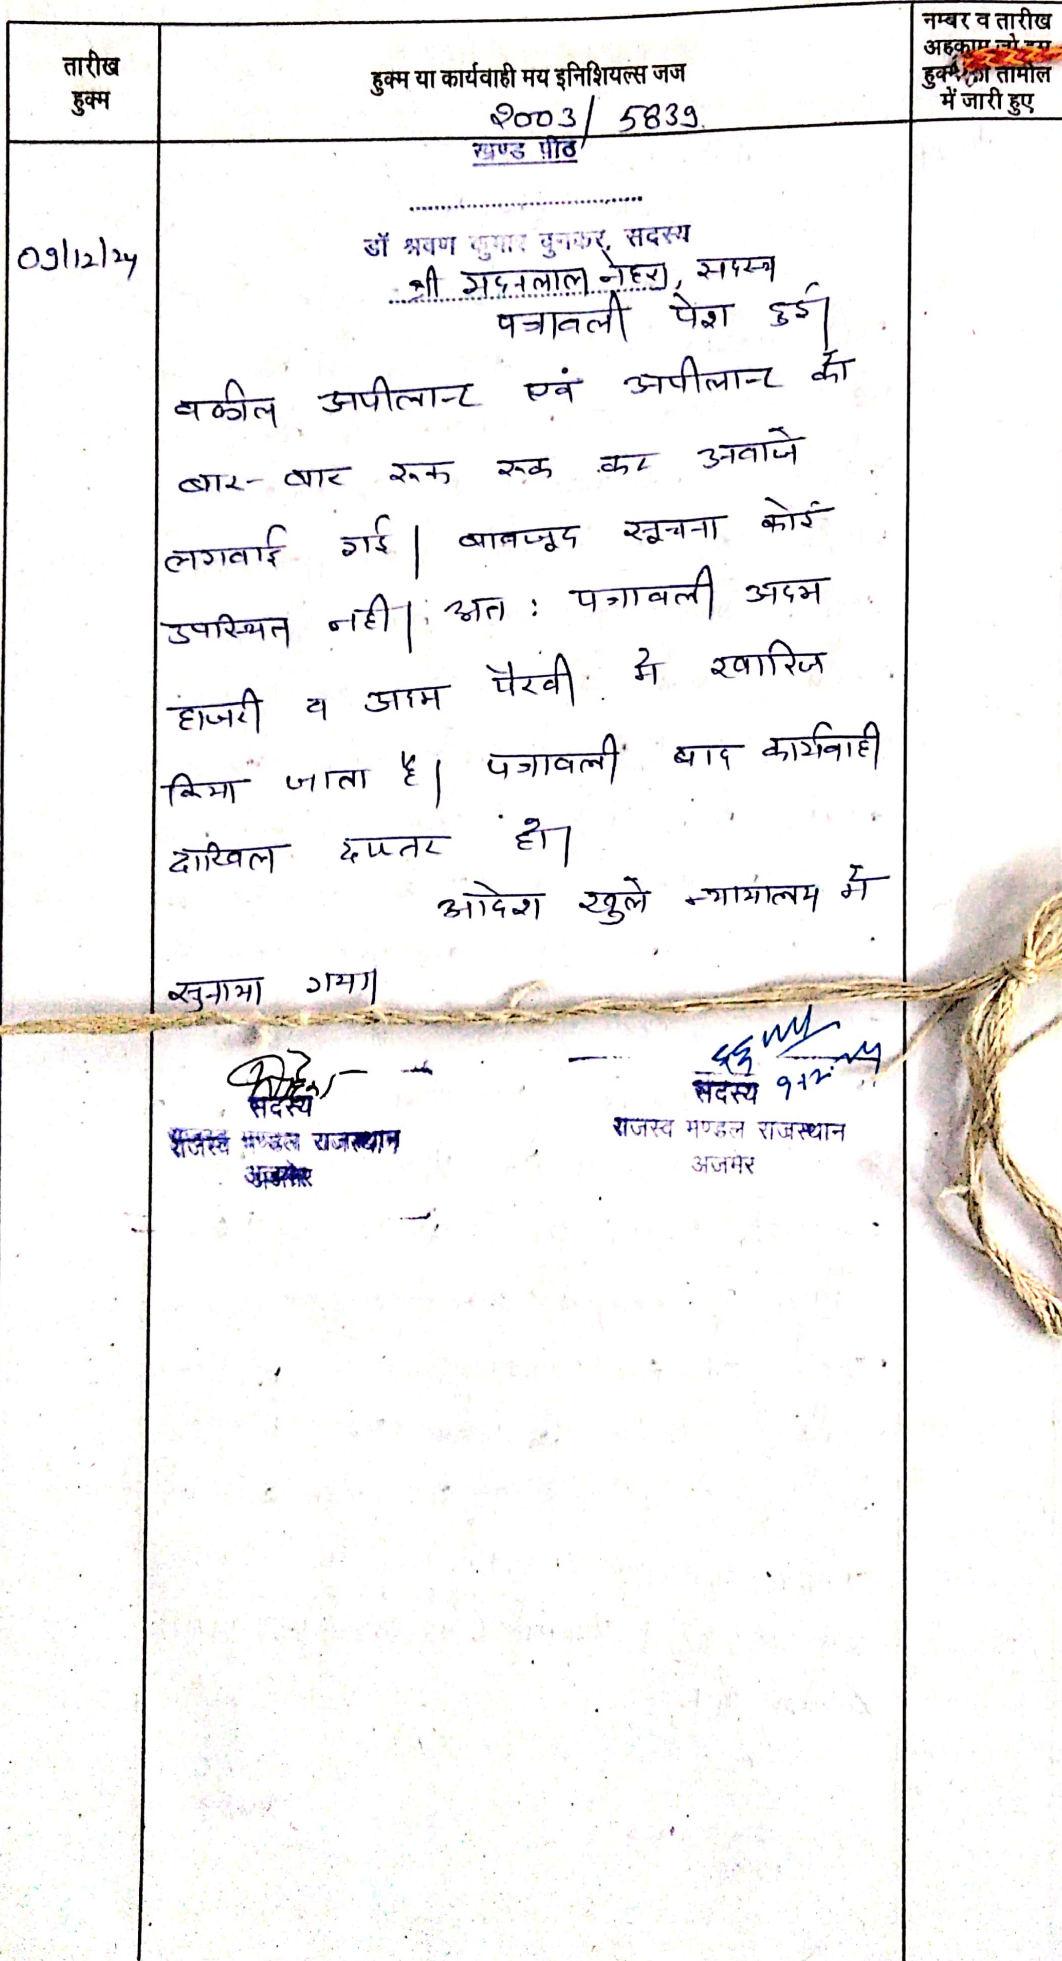 तारीख
हुक्म
हुक्म या कार्यवाही मय इनिशियल्स जज
नम्बर व तारीख
अहकाम जो इस
हुक्म की तामील
में जारी हुए
2003/5839.
खण्ड पीठ
09/12/24
डॉ श्रवण कुमार बुनकर, सदस्य
श्री मदनलाल नेहरा, सदस्य
पत्रावली पेश हुई।
वकील अपीलान्ट एवं अपीलान्ट को
बार-बार रूक रूक कर अवाजे
लगवाई गई। बावजूद सूचना कोई
उपस्थित नही। अत: पत्रावली अदम
हाजरी व अदम पैरवी में खारिज
किया जाता है। पत्रावली बाद कार्यवाही
दाखिल दफ्तर हो।
आदेश खुले न्यायालय में
सुनाया गया।
सदस्य
राजस्व मण्डल राजस्थान
अजमेर
9.12.24
सदस्य
राजस्व मण्डल राजस्थान
अजमेर